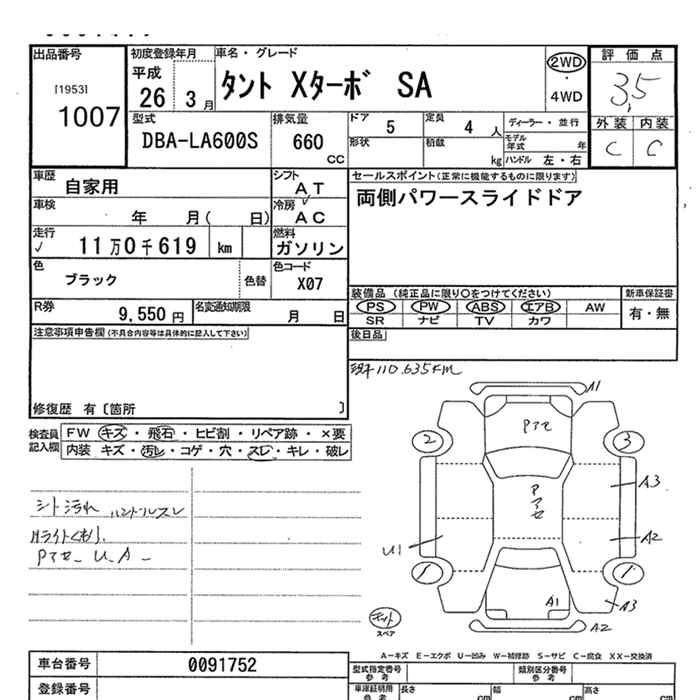 出品番号
[1953]
1007
初度登録年月
平成
26 3 月
車名・グレード
タント Xターボ SA
2WD
・
4WD
評価点
3.5
外装 内装
C C
型式
DBA-LA600S
排気量
660
CC
ドア 5
定員 4 人
形状
積載 kg
ディーラー・並行
モデル年式 年
ハンドル 左・右
車歴 自家用
シフト AT
車検 年 月( 日)
冷房 AC
走行 ✓ 11万0千619 km
燃料 ガソリン
色 ブラック
色替
色コード X07
R券 9,550 円
名変通知期限 月 日
セールスポイント(正常に機能するものに限ります)
両側パワースライドドア
装備品 (純正品に限り○をつけてください)
新車保証書
PS PW ABS エアB AW
有・無
SR ナビ TV カワ
後日品
注意事項申告欄(不具合内容等は具体的に記入して下さい)
修復歴 有〔箇所 〕
検査員記入欄
FW キズ・飛石・ヒビ割・リペア跡・×要
内装 キズ・汚レ・コゲ・穴・スレ・キレ・破レ
シート汚れ ハンドルスレ
Hライトくもり.
Pアセ_ U_A_
110.635km
A1
Pアセ
2
3
Pアセ
A3
A2
U1
1
1
A1
A3
A2
スペア
A-キズ E-エクボ U-凹み W-補修跡 S-サビ C-腐食 XX-交換済
車台番号 0091752
型式指定番号 参考
類別区分番号 参考
登録番号
車庫証明用 参考
長さ cm
幅 cm
高さ cm